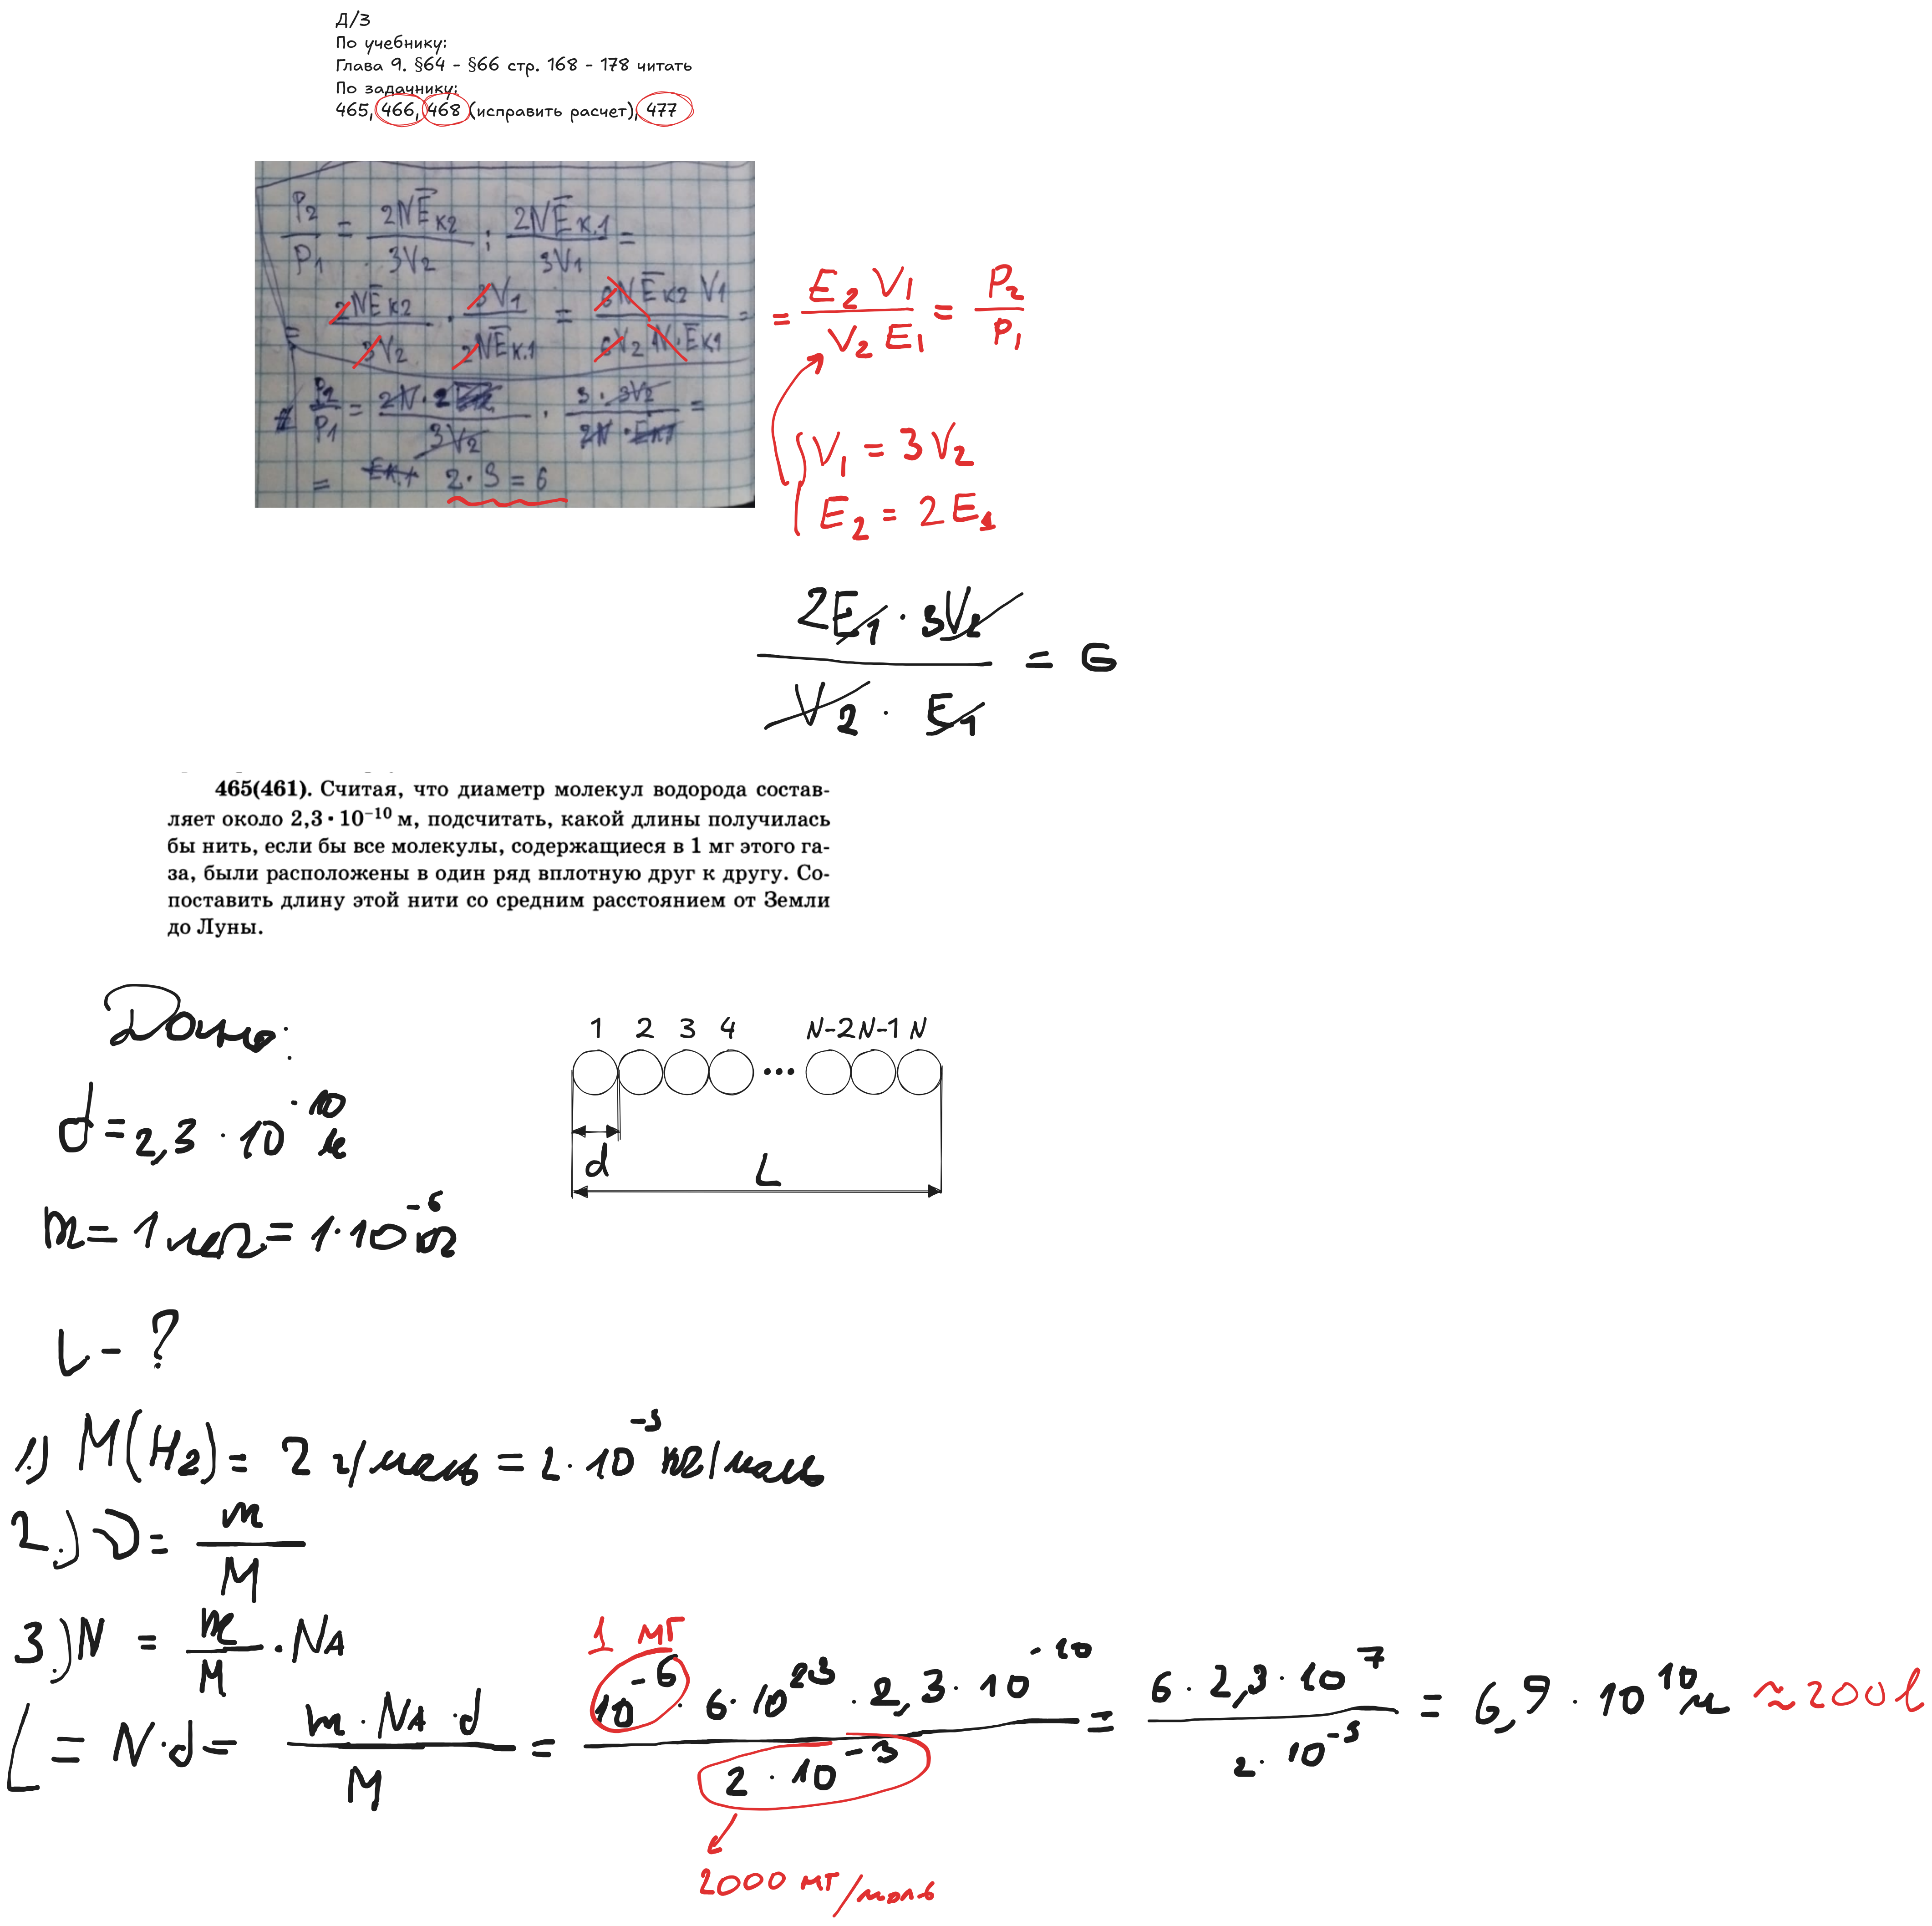 Д/З
По учебнику:
Глава 9. §64 - §66 стр. 168 - 178 читать
По задачнику:
465, 466, 468 (исправить расчет), 477
P2/P1 = 2NĒк2/3V2 : 2NĒк.1/3V1 =
= 2NĒк2/3V2 · 3V1/2NĒк.1 = 6NĒк2 V1/6V2 N·Ēк1 =
= E2 V1/V2 E1 = P2/P1
P2/P1 = 2N·2/3V2 · 3·3V2/2N·Eк1 =
= Eк.1 2·3 = 6
V1 = 3V2
E2 = 2E1
2E1 · 3V2/V2 · E1 = 6
465(461). Считая, что диаметр молекул водорода состав-
ляет около 2,3 • 10⁻¹⁰ м, подсчитать, какой длины получилась
бы нить, если бы все молекулы, содержащиеся в 1 мг этого га-
за, были расположены в один ряд вплотную друг к другу. Со-
поставить длину этой нити со средним расстоянием от Земли
до Луны.
Дано:
1 2 3 4 N-2 N-1 N
...
d = 2,3 · 10⁻¹⁰ м
d
L
m = 1 мг = 1·10⁻⁶ кг
L - ?
1.) M(H2) = 2 г/моль = 2·10⁻³ кг/моль
2.) ν = m/M
3.) N = m/M · NA
1 мг
L = N·d = m·NA·d/M = 10⁻⁶ · 6·10²³ · 2,3·10⁻¹⁰/2·10⁻³ = 6·2,3·10⁷/2·10⁻³ = 6,9·10¹⁰ м ≈200l
2000 мг/моль